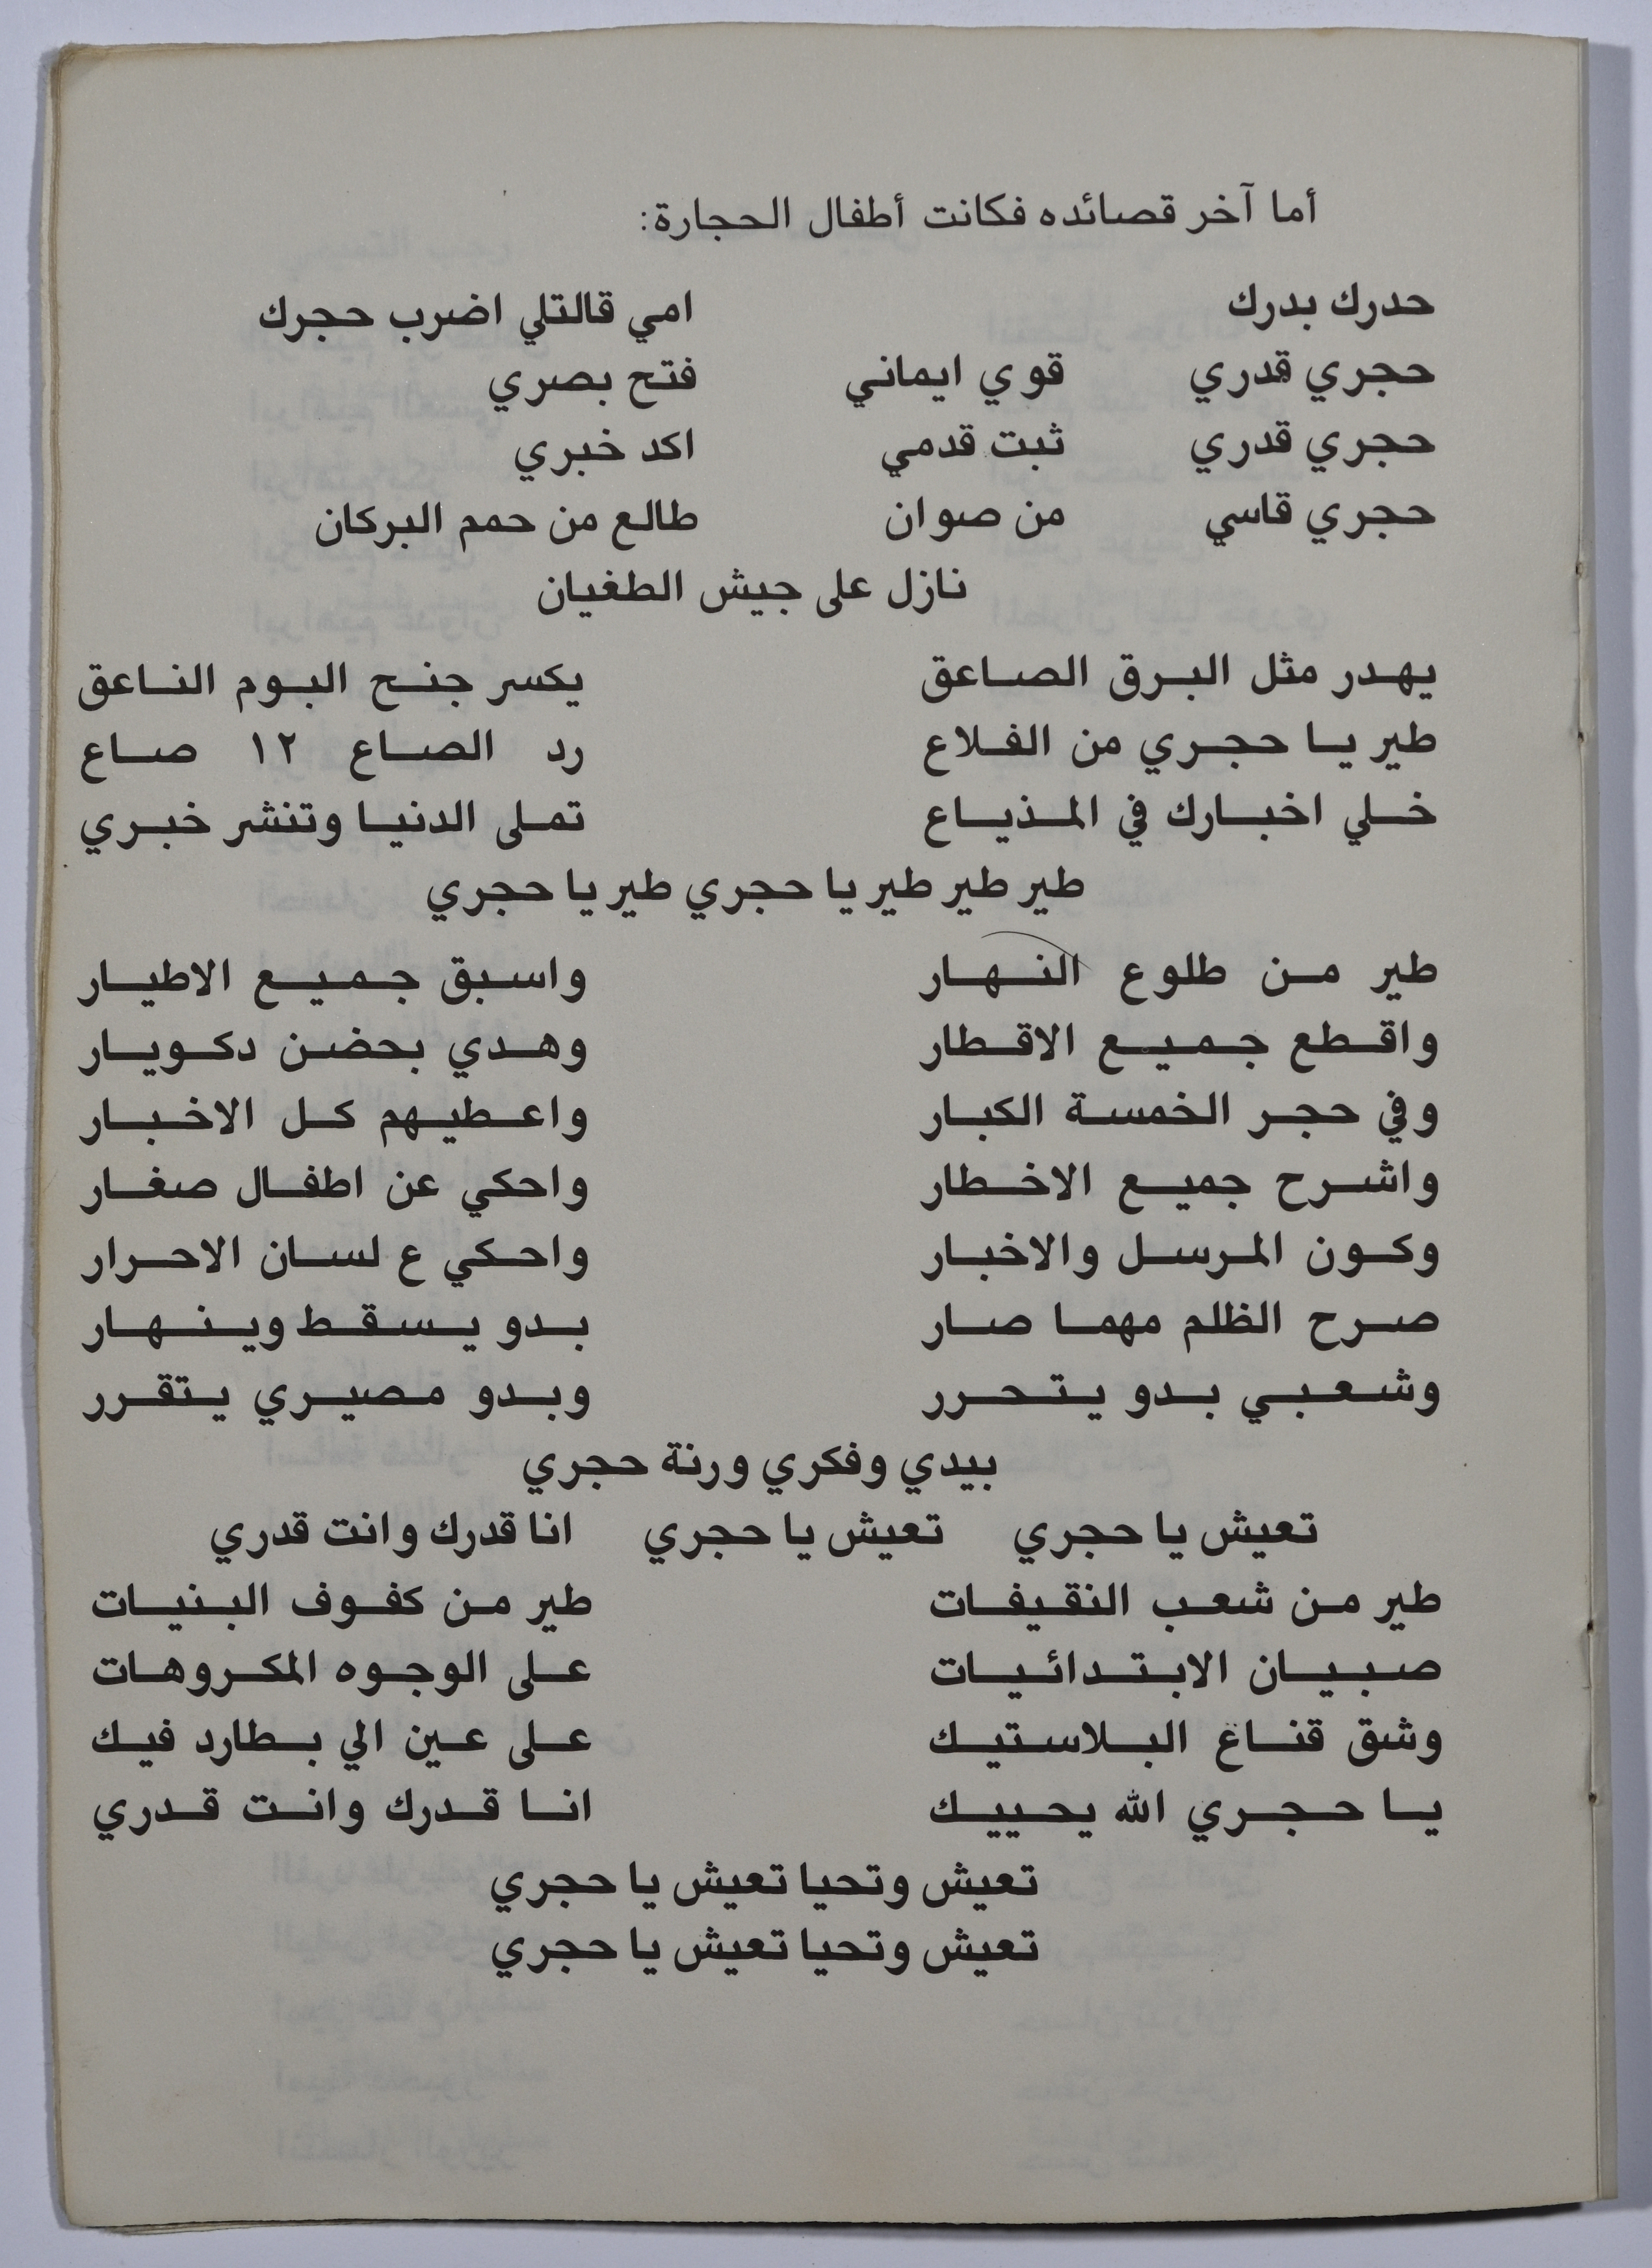 أما آخر قصائده فكانت أطفال الحجارة:
حدرك بدرك امي قالتلي اضرب حجرك
حجري قدري قوي ايماني فتح بصري
حجري قدري ثبت قدمي اكد خبري
حجري قاسي من صوان طالع من حمم البركان
نازل على جيش الطغيان
يهدر مثل البرق الصاعق يكسر جنح البوم الناعق
طير يا حجري من الفلاع رد الصاع ١٢ صاع
خلي اخبارك في المذياع تملى الدنيا وتنشر خبري
طير طير طير يا حجري طير يا حجري
طير من طلوع النهار واسبق جميع الاطيار
واقطع جميع الاقطار وهدي بحضن دكويار
وفي حجر الخمسة الكبار واعطيهم كل الاخبار
واشرح جميع الاخطار واحكي عن اطفال صغار
وكون المرسل والاخبار واحكي ع لسان الاحرار
صرح الظلم مهما صار بدو يسقط وينهار
وشعبي بدو يتحرر وبدو مصيري يتقرر
بيدي وفكري ورنة حجري
تعيش يا حجري تعيش يا حجري انا قدرك وانت قدري
طير من شعب النقيفات طير من كفوف البنيات
صبيان الابتدائيات على الوجوه المكروهات
وشق قناع البلاستيك على عين الي بطارد فيك
يا حجري الله يحييك انا قدرك وانت قدري
تعيش وتحيا تعيش يا حجري
تعيش وتحيا تعيش يا حجري